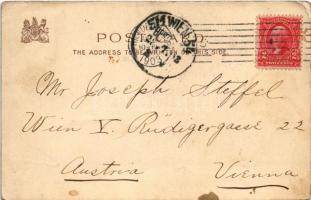 POST CARD.
THE ADDRESS TO BE WRITTEN ON THIS SIDE.
WIEN
Mr Joseph Steffel
Wien V. Rüdigergasse 22
Austria Vienna